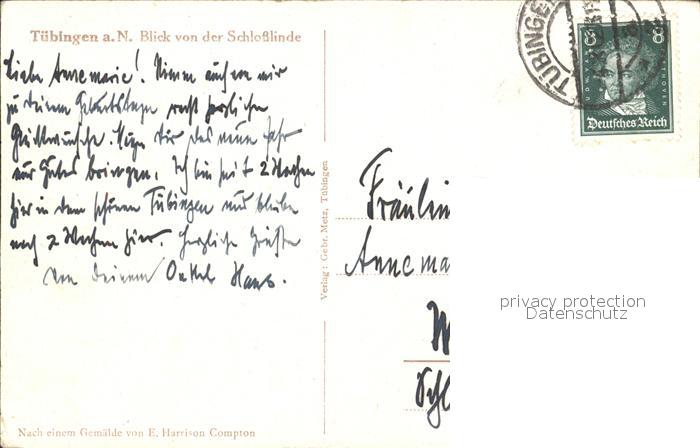 Tübingen a. N. Blick von der Schloßlinde
Liebe Annemarie! Nimm auch von mir
zu deinem Geburtstage recht herzliche
Glückwünsche. Möge dir das neue Jahr
nur Gutes bringen. Ich bin seit 2 Wochen
hier in dem schönen Tübingen und bleibe
noch 2 Wochen hier. Herzliche Grüße
von deinem Onkel Hans.
Nach einem Gemälde von E. Harrison Compton
Verlag: Gebr. Metz, Tübingen
TÜBINGEN
8 8
Deutsches Reich
Fräulein
Annema
W
Schl
privacy protection
Datenschutz